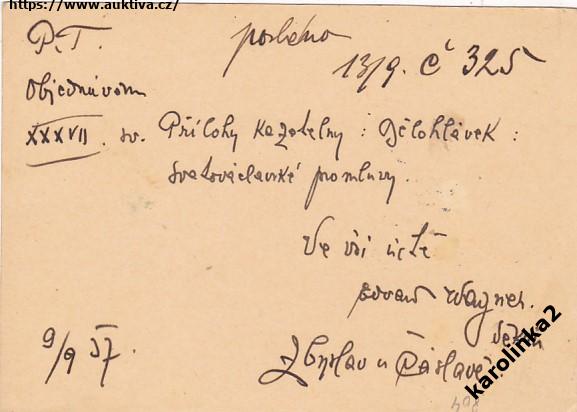 https://www.auktiva.cz/
P.T.
posláno
13/9. č 325
Objednávám
XXXVII. sv. Přílohy Kazatelny: Bělohlávek:
Svatováclavské promluvy.
Ve vší úctě
Wagner.
9/9 37.
Zbyslav u Čáslavě.
karolinka2